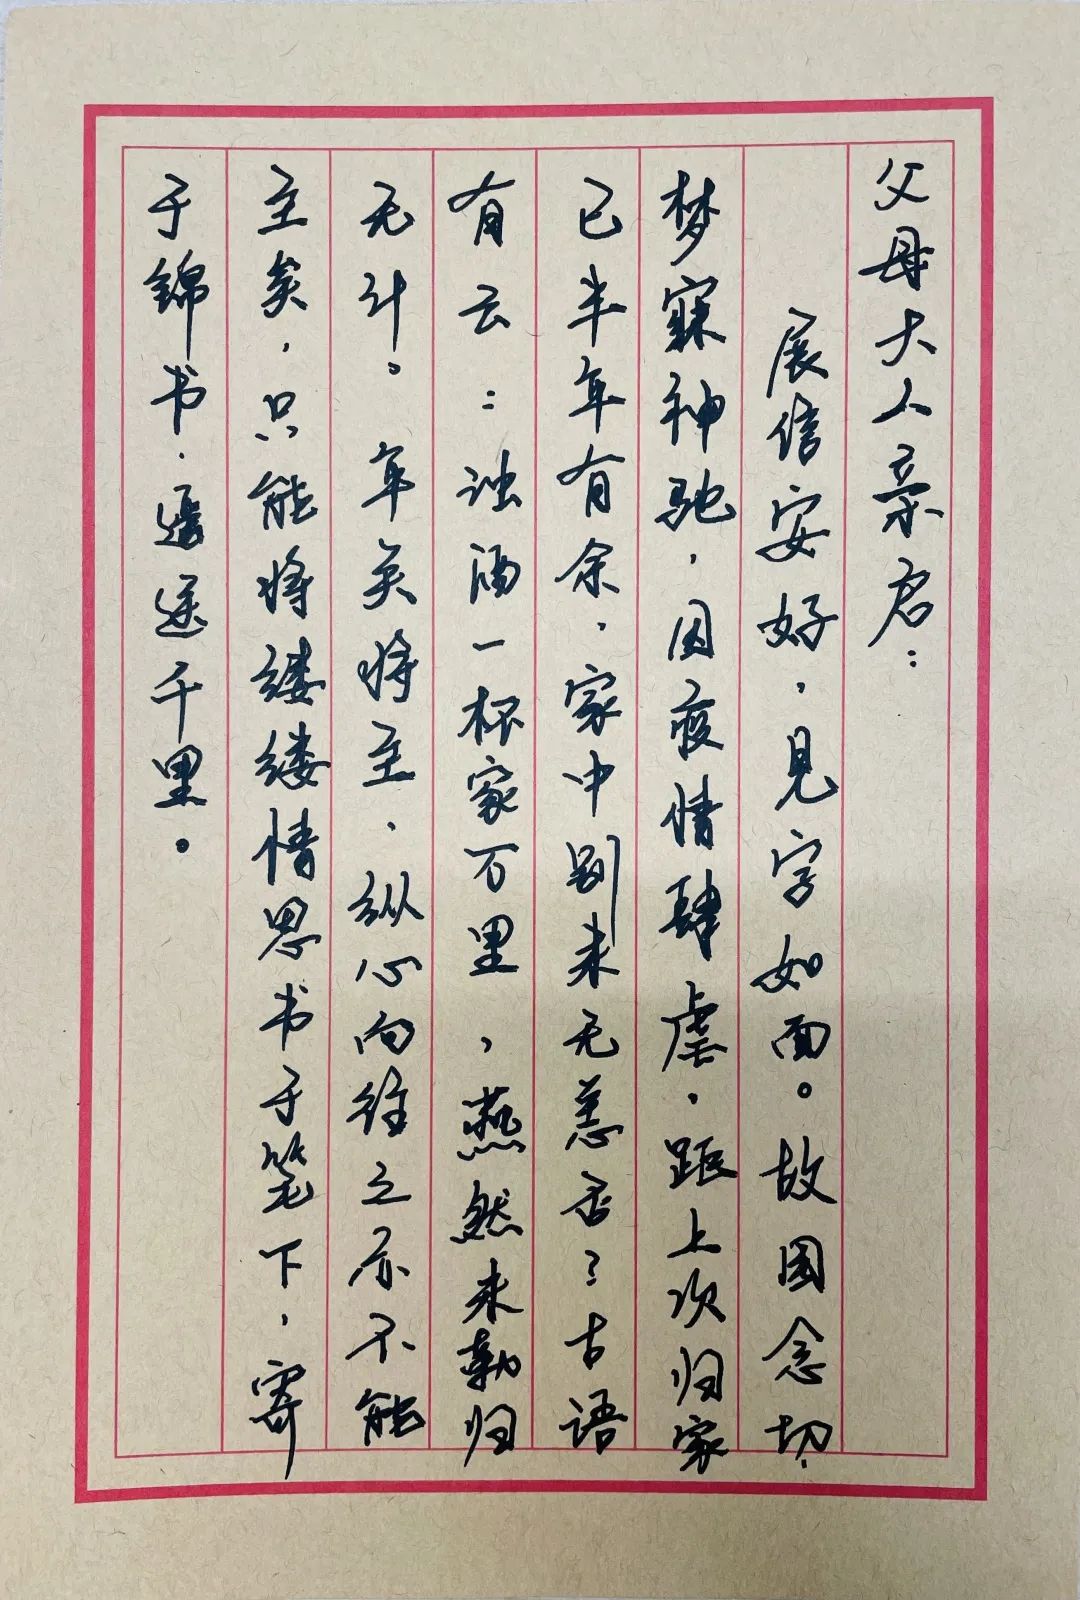 父母大人亲启：
展信安好，见字如面。故园念切，
梦寐神驰，因疫情肆虐，距上次归家
已半年有余，家中别来无恙否？古语
有云：浊酒一杯家万里，燕然未勒归
无计。年关将至，纵心向往之亦不能
至矣，只能将缕缕情思书于笔下，寄
于锦书，遥送千里。